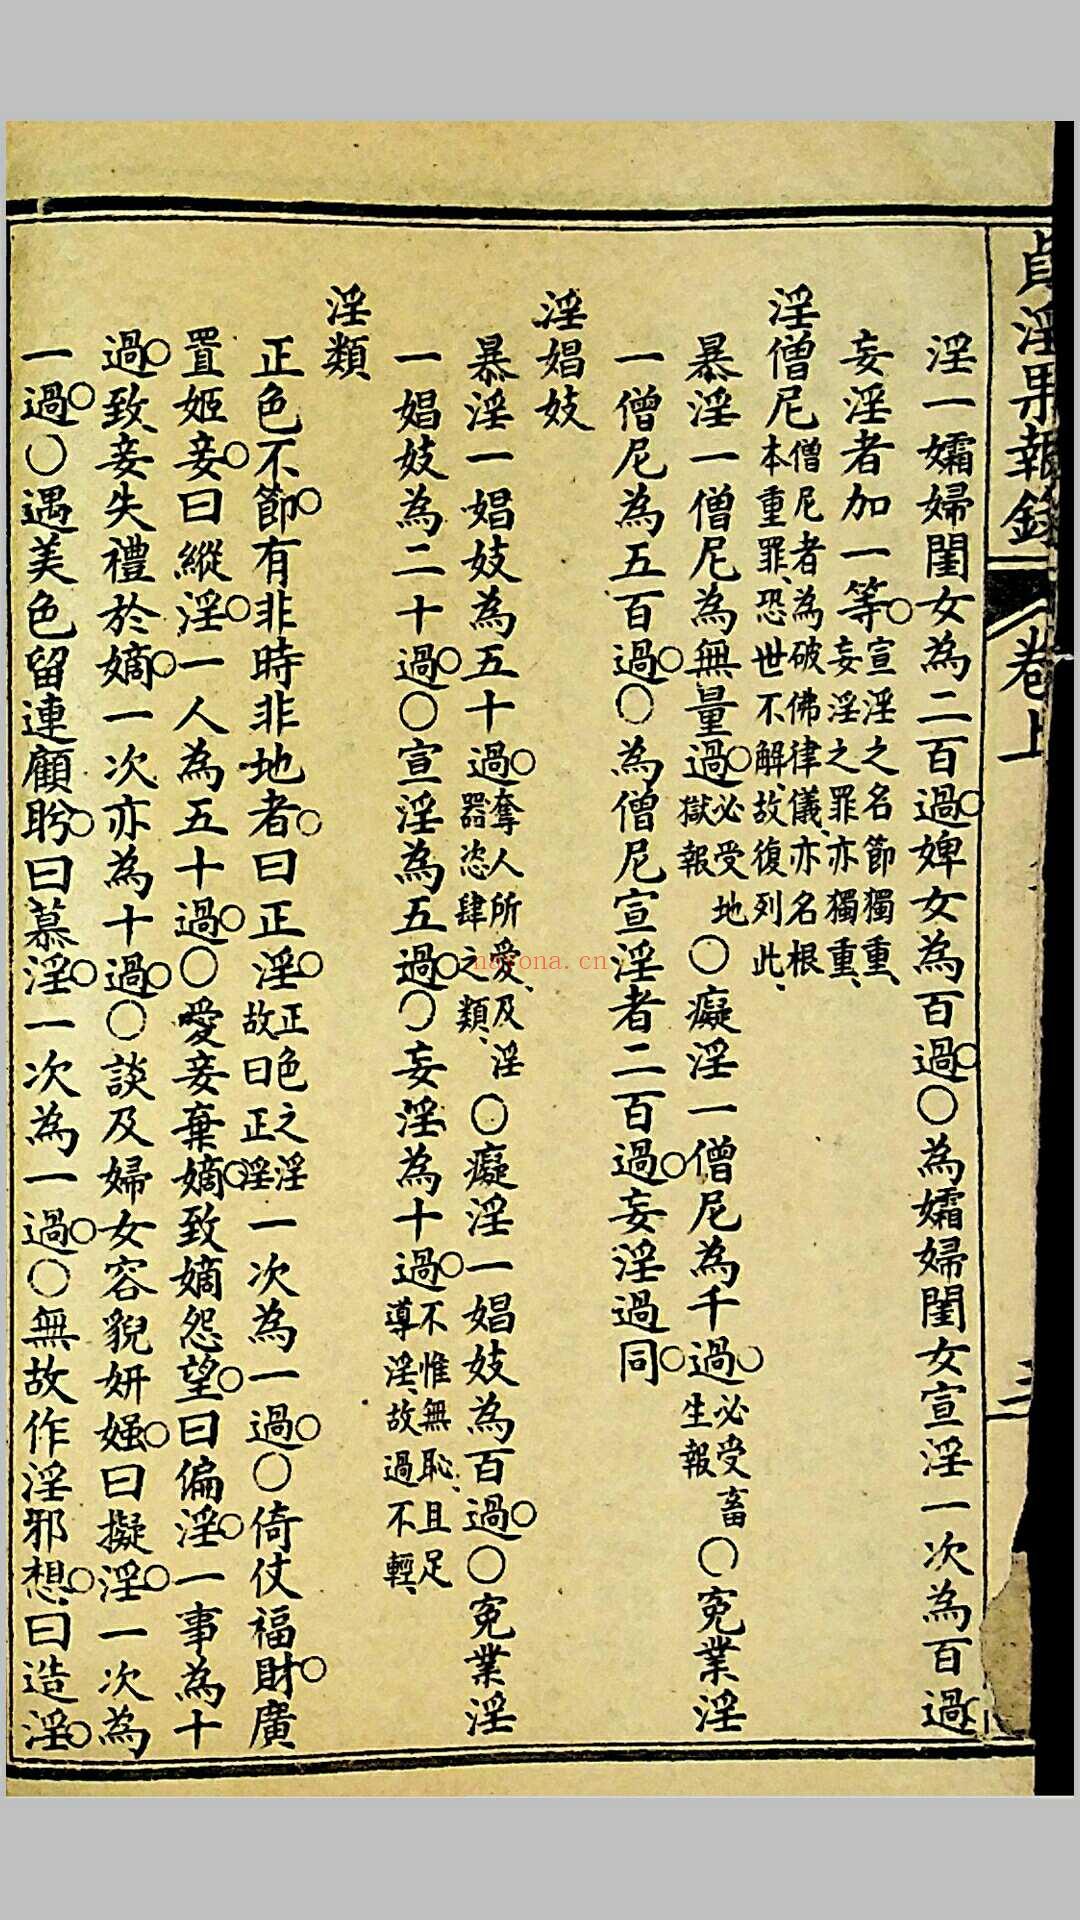 貞淫果報錄 卷上 三
淫一孀婦閨女為二百過婢女為百過〇為孀婦閨女宣淫一次為百過
妄淫者加一等宣淫之名節獨重、妄淫之罪亦獨重、
淫僧尼僧尼者為破佛律儀、亦名根本重罪、恐世不解、故復列此、
暴淫一僧尼為無量過必受地獄報〇癡淫一僧尼為千過必受畜生報〇冤業淫
一僧尼為五百過〇為僧尼宣淫者二百過妄淫過同
淫娼妓
暴淫一娼妓為五十過奪人所愛、及淫器恣肆之類、〇癡淫一娼妓為百過〇冤業淫
一娼妓為二十過〇宣淫為五過〇妄淫為十過不惟無恥、且足導淫、故過不輕、
淫類
正色不節有非時非地者曰正淫正色之淫故曰正淫一次為一過〇倚仗福財廣
置姬妾曰縱淫一人為五十過〇愛妾棄嫡致嫡怨望曰偏淫一事為十
過致妾失禮於嫡一次亦為十過〇談及婦女容貌妍媸曰擬淫一次為
一過〇遇美色留連顧盻曰慕淫一次為一過〇無故作淫邪想、曰造淫
nayona.cn